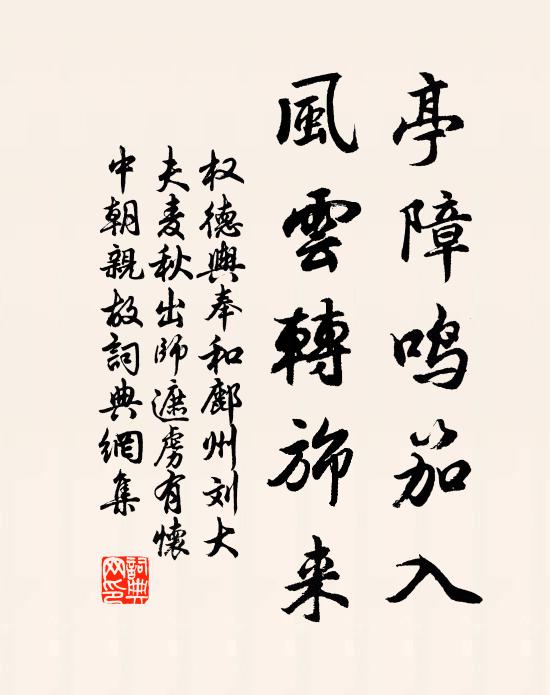 亭障鸣笳入
風雲轉旆来
权德輿奉和鄜州刘大
夫麦秋出师遮虏有懷
中朝親故詞典網集
詞典网印